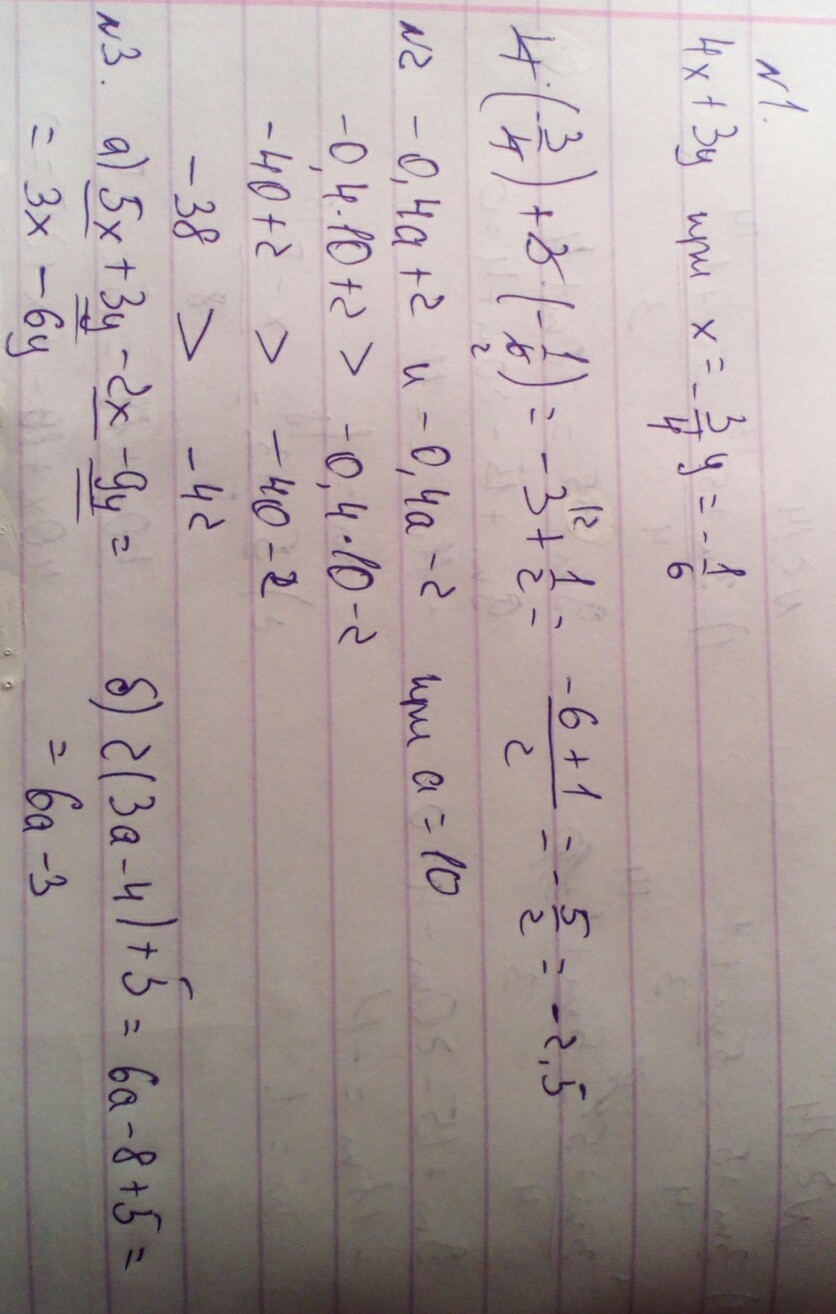 №1.
4x + 3y при x = -3/4 y = -1/6
4·(-3/4) + 3·(-1/6) = -3 + 1/2 = (-6+1)/2 = -5/2 = -2,5
№2 -0,4a+2 и -0,4a-2 при a=10
-0,4·10+2 > -0,4·10-2
-40+2 > -40-2
-38 > -42
№3. а) 5x+3y-2x-9y= б) 2(3a-4)+5 = 6a-8+5=
= 3x - 6y = 6a-3